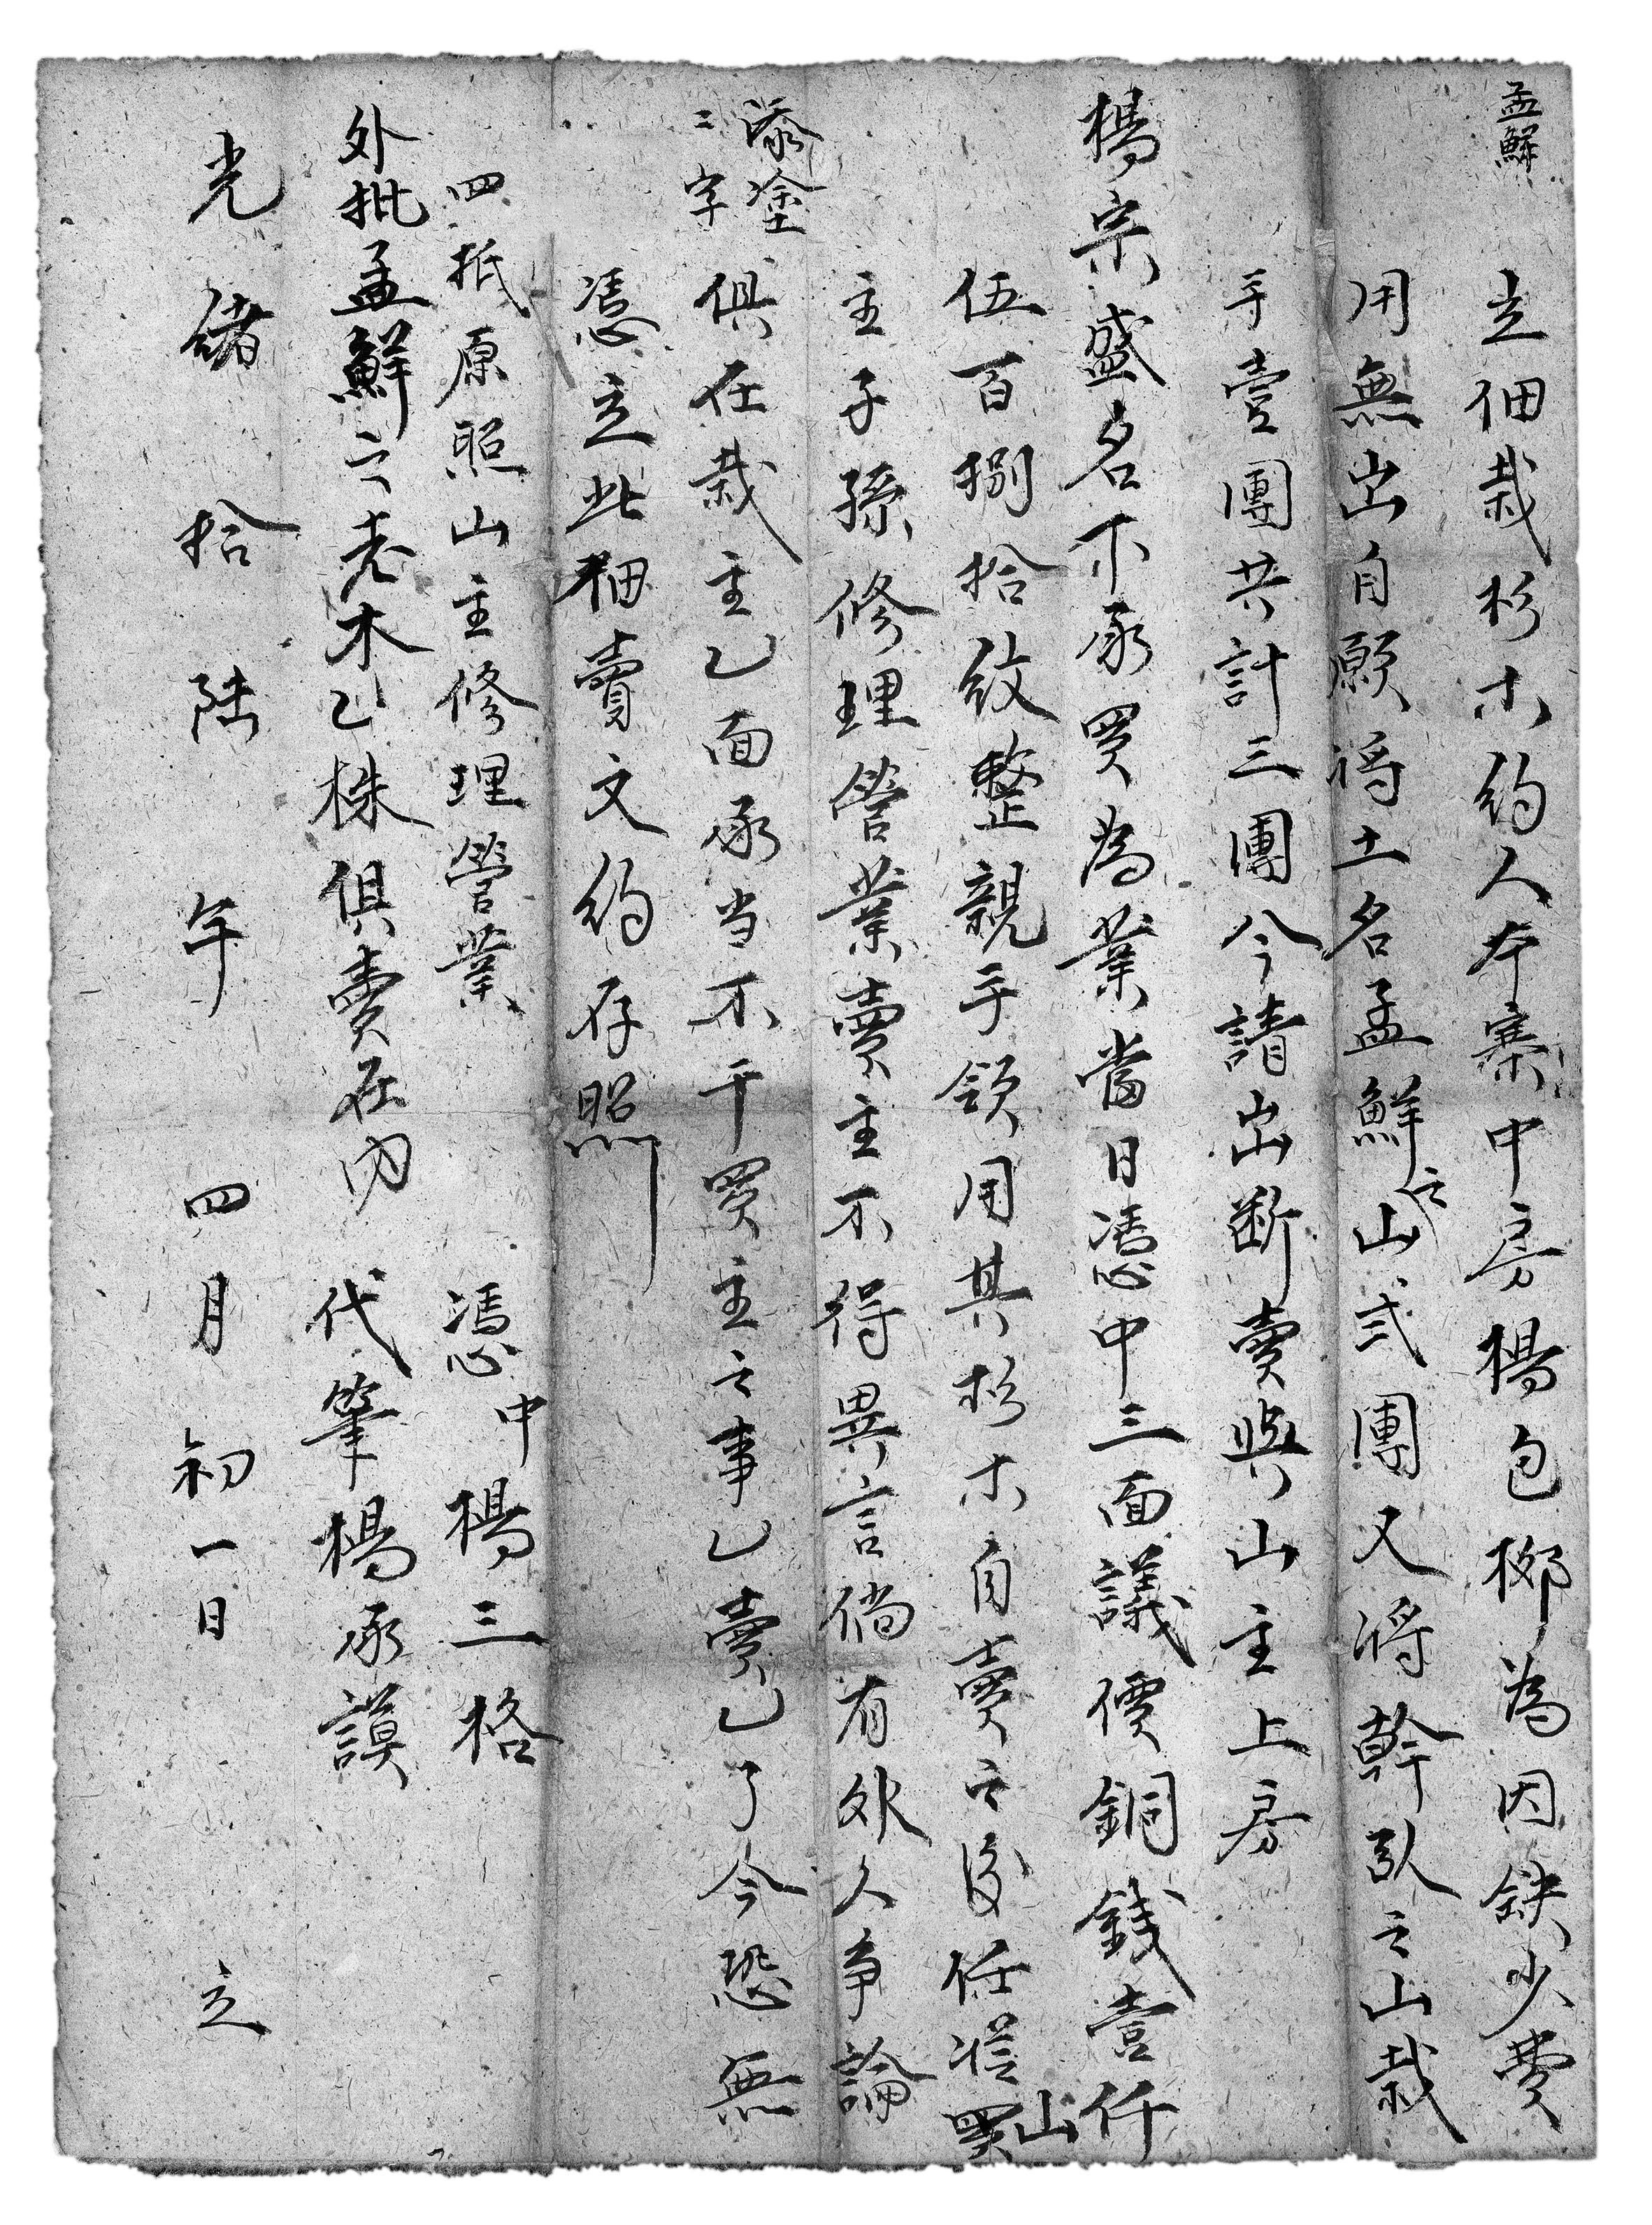 孟鮮
立佃栽杉木約人本寨中房楊包挪為因缺少費
用無出自願将土名孟鮮之山弍團又將幹趴之山栽
手壹團共計三團今請出断賣與山主上房
楊宗盛名下承買為業當日憑中三面議價銅錢壹仟
伍百捌拾紋整親手領用其杉木自賣之後任從買山
主子孫修理管業賣主不得異言倘有外人争論
添塗
二字
俱在栽主乙面承当不干買主之事乙賣乙了今恐無
憑立此佃賣文約存照
四抵原照山主修理管業
憑中楊三格
外批孟鮮之老木乙株俱賣在内
代筆楊承謨
光緒拾陸年四月初一日 立